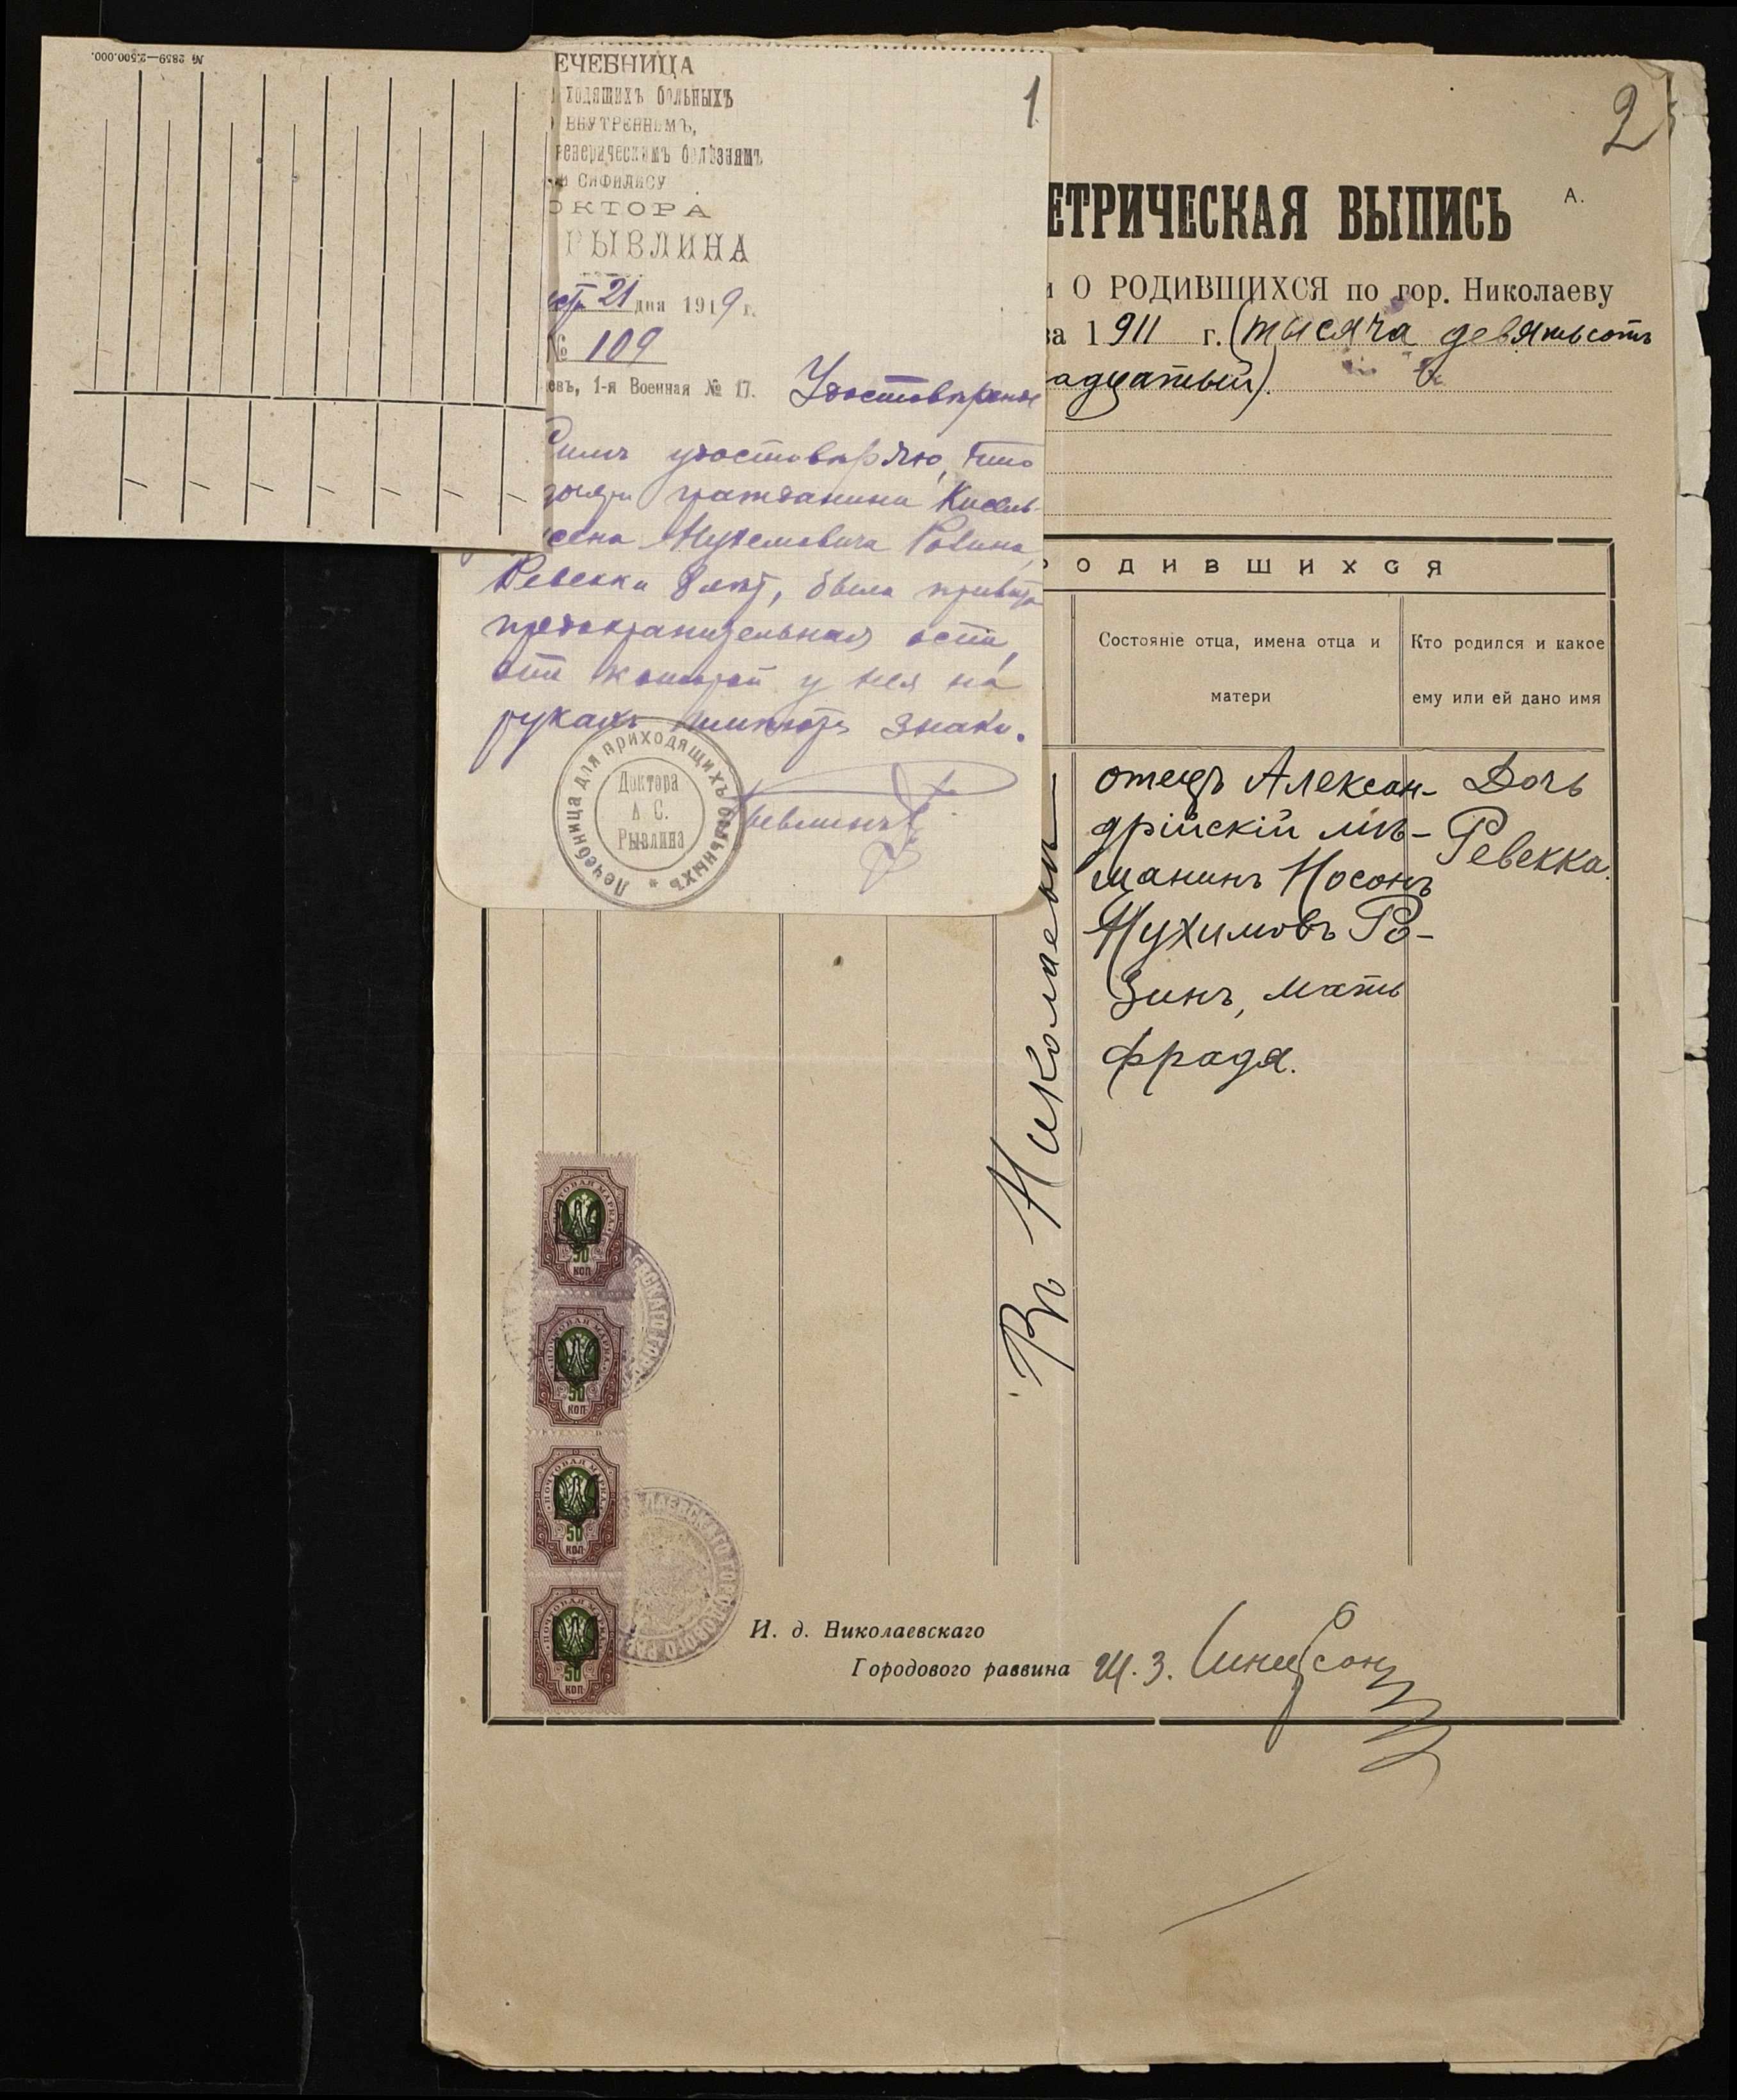 № 2859—2.500.000.
ЕЧЕБНИЦА
ХОДЯЩИХЪ БОЛЬНЫХЪ
ВНУТРЕННИМЪ,
венерическимъ болѣзнямъ
СИФИЛИСУ
ОКТОРА
РЫВЛИНА
21 дня 1919 г.
№ 109
евъ, 1-я Военная № 17.
Удостовѣренiе
Симъ удостовѣряю, что
дочери гражданина
Нухимовича
Ревекки 8 лѣтъ, была привита
предохранительная оспа,
отъ которой у нея на
рукахъ имѣются знаки.
Лечебница для приходящихъ больныхъ *
Доктора
А. С.
Рывлина
Рывлинъ
1
2
А.
ЕТРИЧЕСКАЯ ВЫПИСЬ
и О РОДИВШИХСЯ по гор. Николаеву
за 1911 г. (тысяча девятьсотъ
адцатый).
РОДИВШИХСЯ
Состояніе отца, имена отца и
матери
Кто родился и какое
ему или ей дано имя
Въ Николаевѣ
отецъ Алексан-
дрійскій мѣ-
щанинъ Носонъ
Нухимовъ Ро-
зинъ, мать
Фрадя.
Дочь
Ревекка.
ПОЧТОВАЯ МАРКА
50
КОП
ПОЧТОВАЯ МАРКА
50
КОП
ПОЧТОВАЯ МАРКА
50
КОП
ПОЧТОВАЯ МАРКА
50
КОП
ЛАЕВСКАГО ГОРОДОВОГО РА
И. д. Николаевскаго
Городового раввина Ш. З.